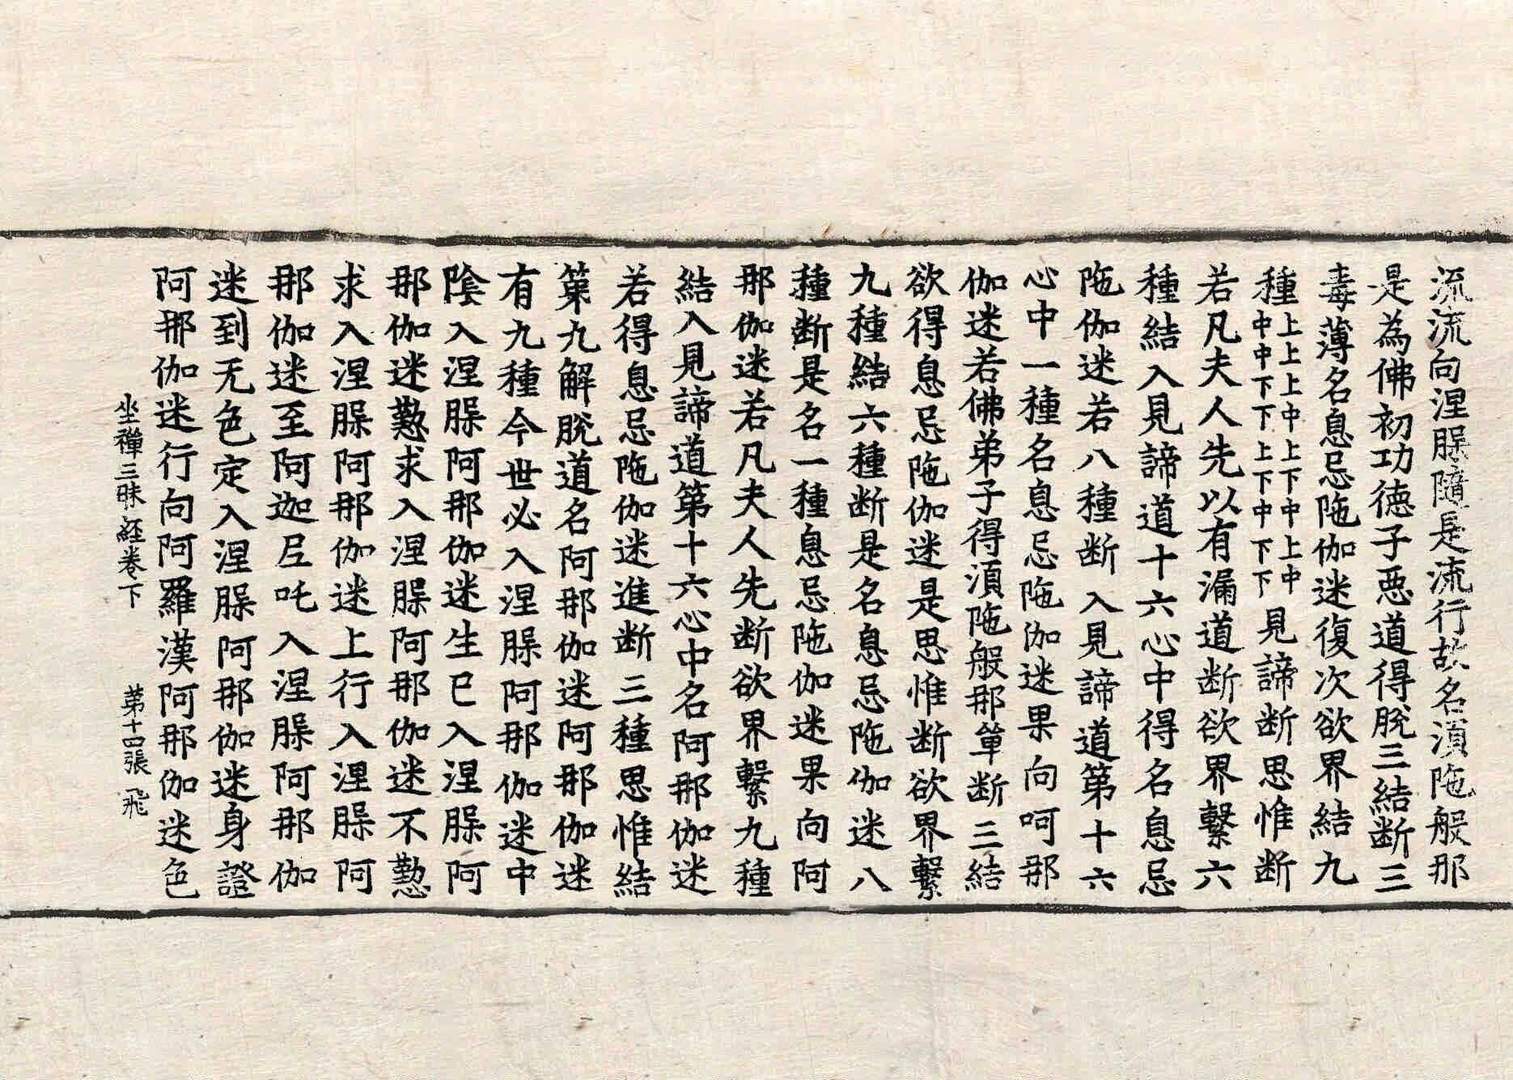 流流向涅槃隨是流行故名湏陁般那
是為佛初功德子惡道得脫三結断三
毒薄名息忌陁伽迷復次欲界結九
種上上上中上下中上中中中下下上下中下下見諦断思惟断
若凡夫人先以有漏道断欲界繫六
種結入見諦道十六心中得名息忌
陁伽迷若八種断入見諦道第十六
心中一種名息忌陁伽迷果向阿那
伽迷若佛弟子得湏陁般那單断三結
欲得息忌陁伽迷是思惟断欲界繫
九種結六種断是名息忌陁伽迷八
種断是名一種息忌陁伽迷果向阿
那伽迷若凡夫人先断欲界繫九種
結入見諦道第十六心中名阿那伽迷
若得息忌陁伽迷進断三種思惟結
第九解脫道名阿那伽迷阿那伽迷
有九種今世必入涅槃阿那伽迷中
陰入涅槃阿那伽迷生已入涅槃阿
那伽迷懃求入涅槃阿那伽迷不懃
求入涅槃阿那伽迷上行入涅槃阿
那伽迷至阿迦尼吒入涅槃阿那伽
迷到无色定入涅槃阿那伽迷身證
阿那伽迷行向阿羅漢阿那伽迷色
坐禪三昧経卷下 第十四張 飛